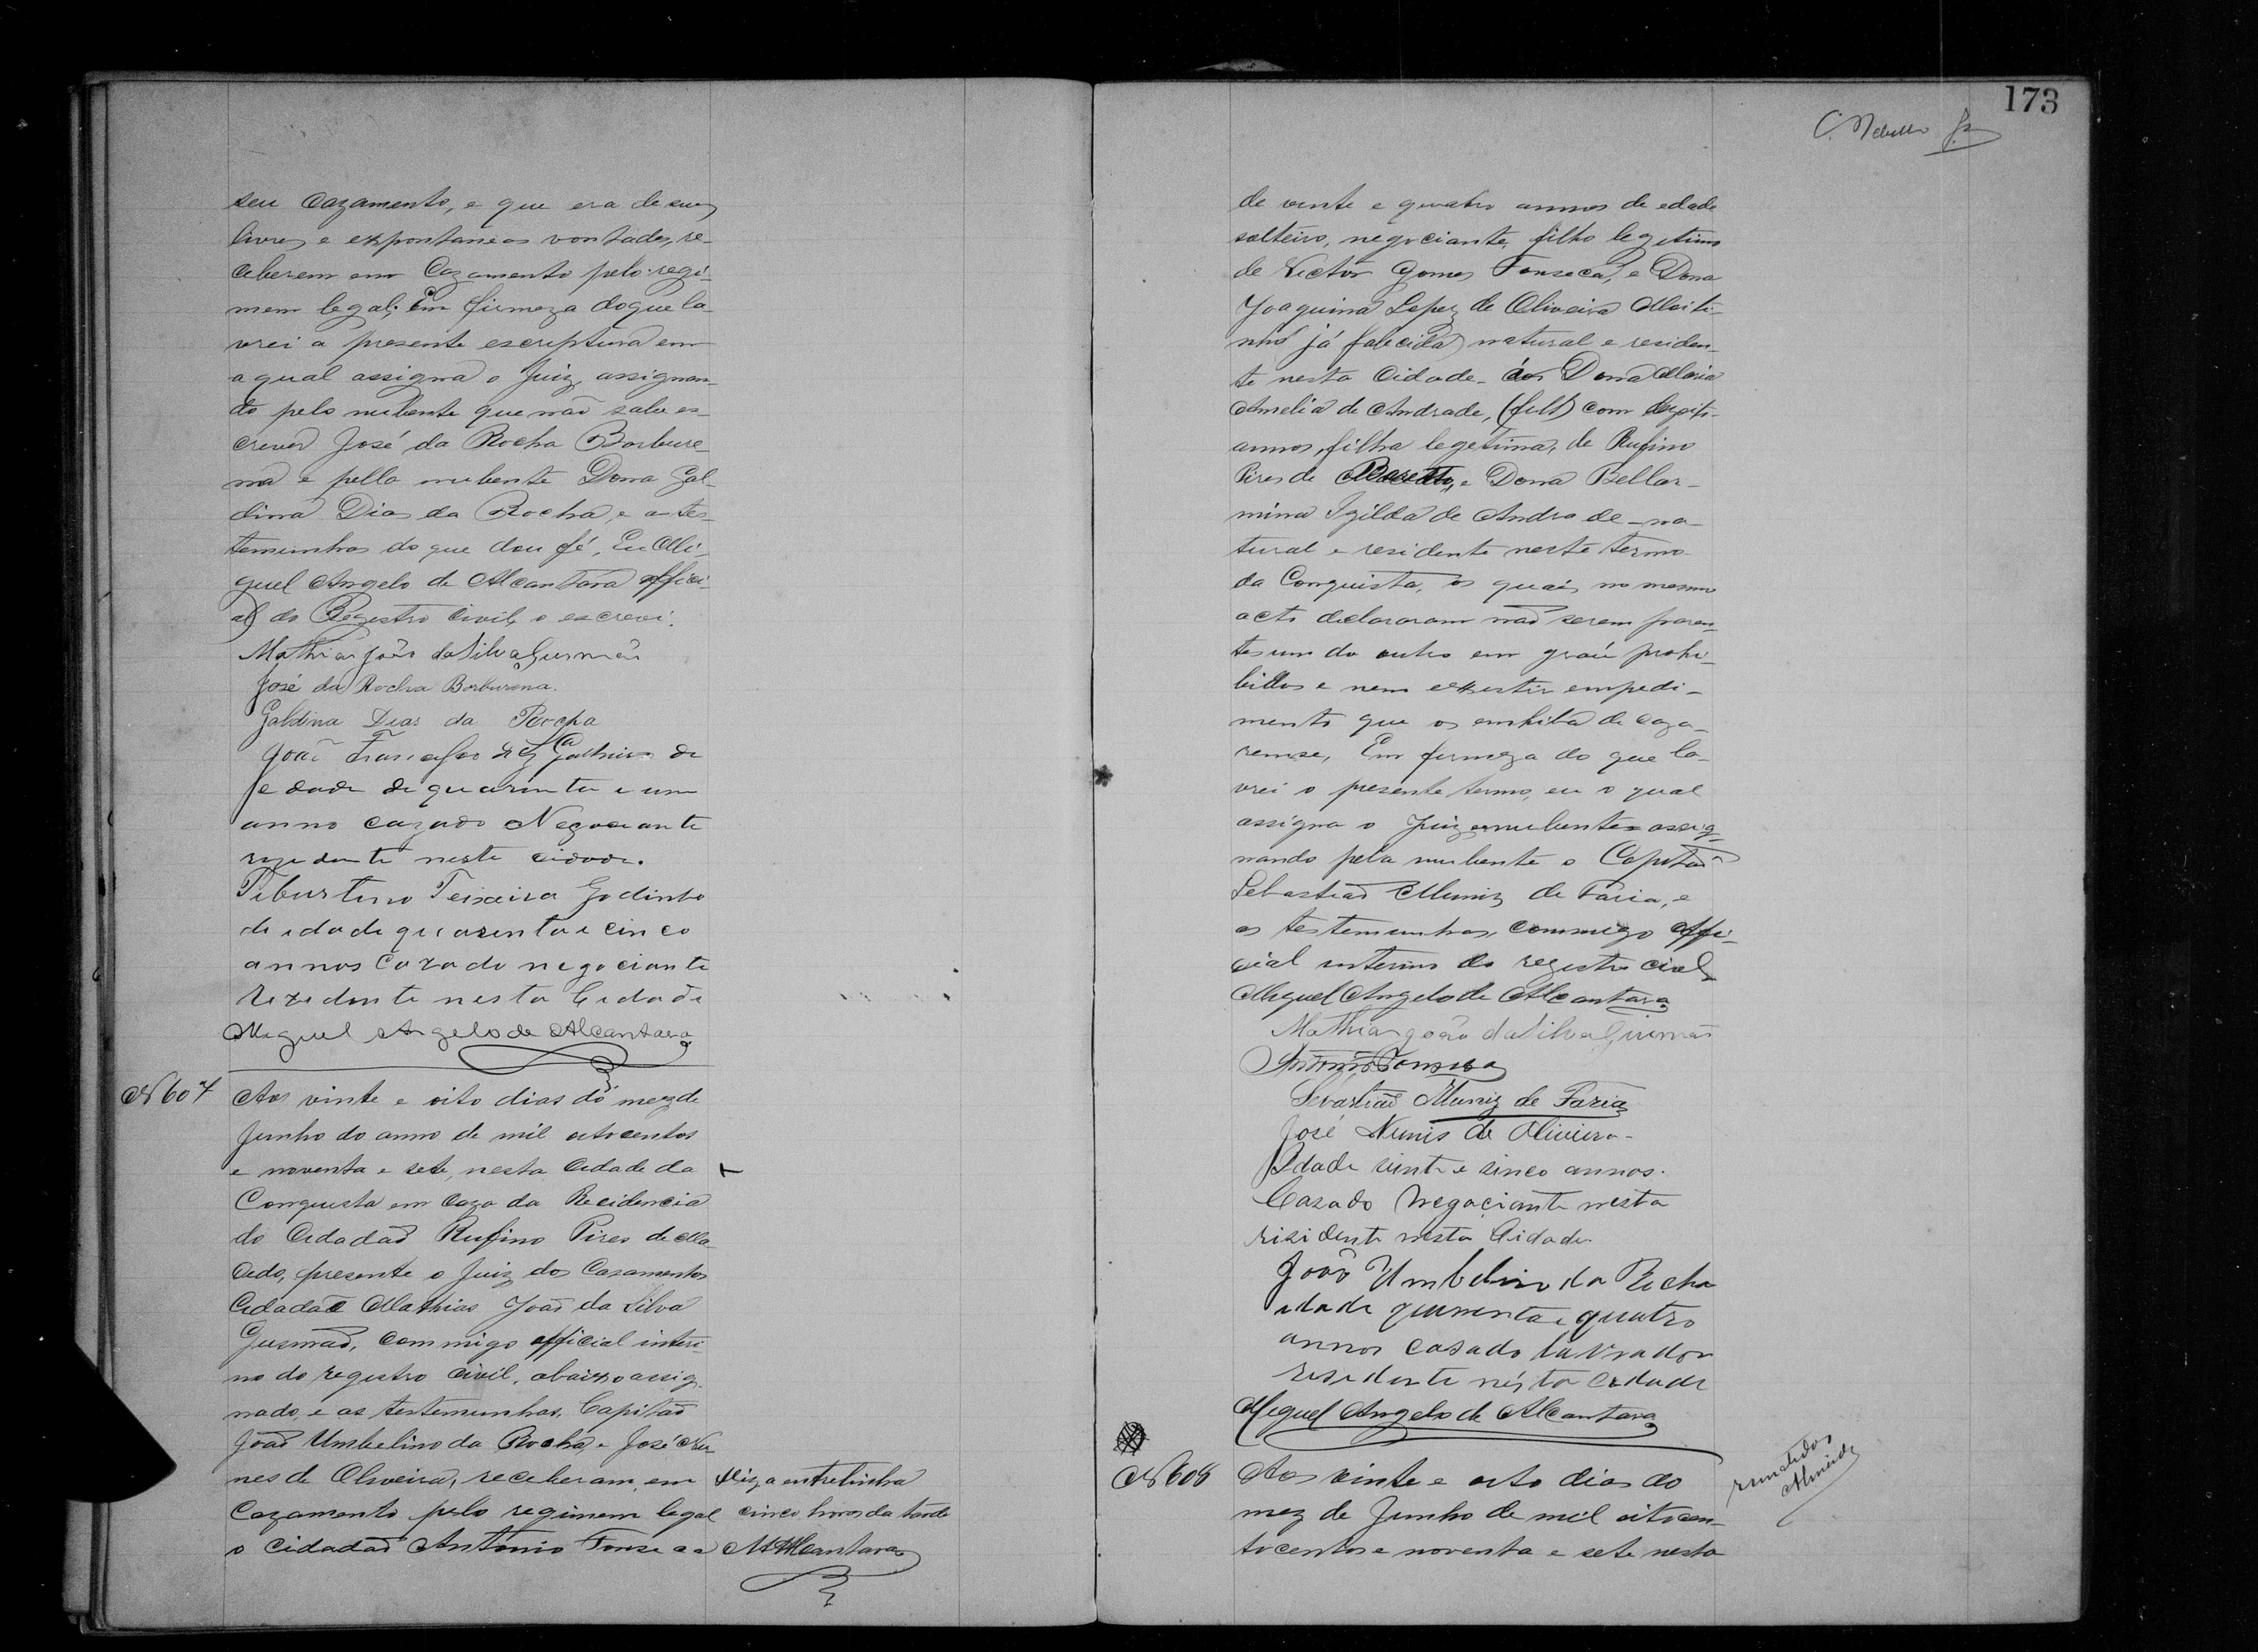 seu Cazamento, e que era de suas
livres e expontaneas vontades, re-
ceberem em Cazamento pelo regi-
mem legal; Em firmeza do que la-
vrei a presente escriptura em
a qual assigna o Juiz, assignan-
do pelo nubente que não sabe es-
crever José da Rocha Borbure-
ma e pella nubente Dona Gal-
dina Dias da Rocha, e as tes-
temunhas do que dou fé, Eu Mi-
guel Angelo de Alcantara offici-
al do Registro Civil, o escrevi.
Mathias João da Silva Gusmão
José da Rocha Borburema.
Galdina Dias da Rocha
João de
edade de quarinta e um
anno cazado Negociante
rezedente nesta cidade.
Tiburtino Teixeira Godinho
de idade quarenta e cinco
annos Cazado negociante
Rezidente nesta Cidade
Miguel Angelo de Alcantara
N 607
Aos vinte e oito dias do mez de
Junho do anno de mil oitocentos
e noventa e sete, nesta Cidade da
Conquista em Caza da Recidencia
do Cidadaõ Rufino Pires de Ma-
cedo, presente o Juiz dos Casamentos
Cidadaõ Mathias João da Silva
Gusmaõ, commigo official interi-
no do registro Civil, abaixo assig-
nado, e as testemunhas, Capitaõ
João Umbelino da Rocha e José Nu-
nes de Oliveira, receberam, em
Cazamento pelo regimem legal
o Cidadaõ Antonio Fonseca
Diz a entrelinha
cinco horas da tarde
MAAlcantara
173
de vinte e quatro annos de edade
solteiro, negociante, filho legetimo
de Victor Gomes Fonseca, e Dona
Joaquina Lopes de Oliveira
já falecida) natural e residen-
te nesta Cidade. Dona Maria
Amelia de Andrade, com
annos, filha legetima, de Rufino
Pires de e Dona Bellar-
mina de Andrade - na-
tural e residente neste termo
da Conquista, os quais no mesmo
acto declararam naõ serem paren-
tes um do outro em gráu prohi-
bidos e nem existir empedi-
mento que os de caza-
remse, Em firmeza do que la-
vrei o presente termo, eu o qual
assigna o Juiz nubentes assig-
nando pela nubente o Capitaõ
Sebastiaõ Muniz de Faria, e
as testemunhas, commigo offi-
cial interino do registro civel
Miguel Angelo de Alcantara
Mathias João da Silva Gusmão
Antonio Fonseca
Sevastiaõ Muniz de Faria
José Nunis de Oliveira-
Idade vinte e sinco annos.
Casado Negaciante nesta
risidente nesta Cidade
João Umbelino da Rocha
idade quarenta e quatro
annos casado lavrador
residente nésta cidade
Miguel Angelo de Alcantara
N 608
Aos vinte e oito dias do
mez de Junho de mil oitocen-
tocentos e noventa e sete nesta
Almeida